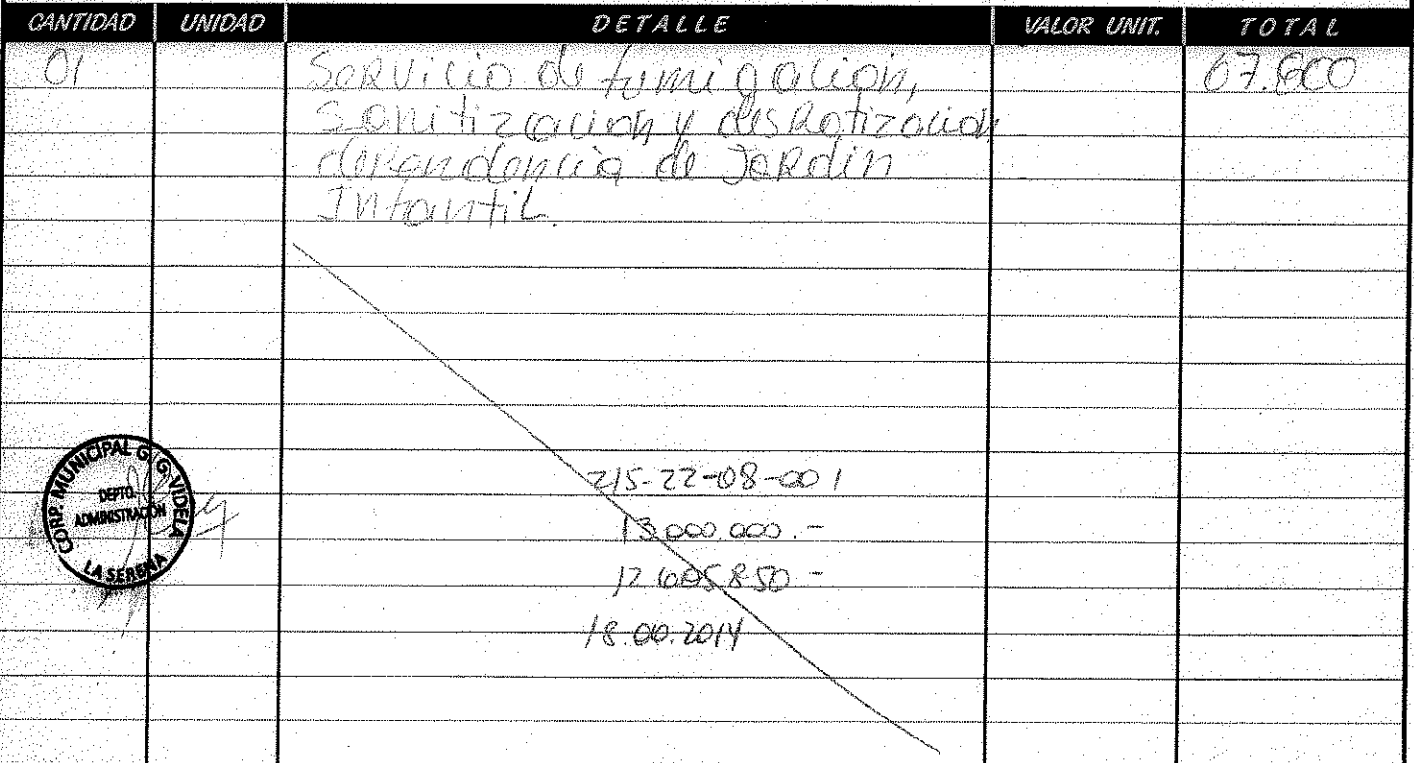 CANTIDAD UNIDAD DETALLE VALOR UNIT. TOTAL
01 Servicio de fumigación,
Sanitización y desratización
dependencia de Jardin
Infantil.
215-22-08-001
13.000.000.-
12.605.850-
18.00.2014
CORP. MUNICIPAL G. G. VIDELA
DEPTO.
ADMINISTRACIÓN
LA SERENA